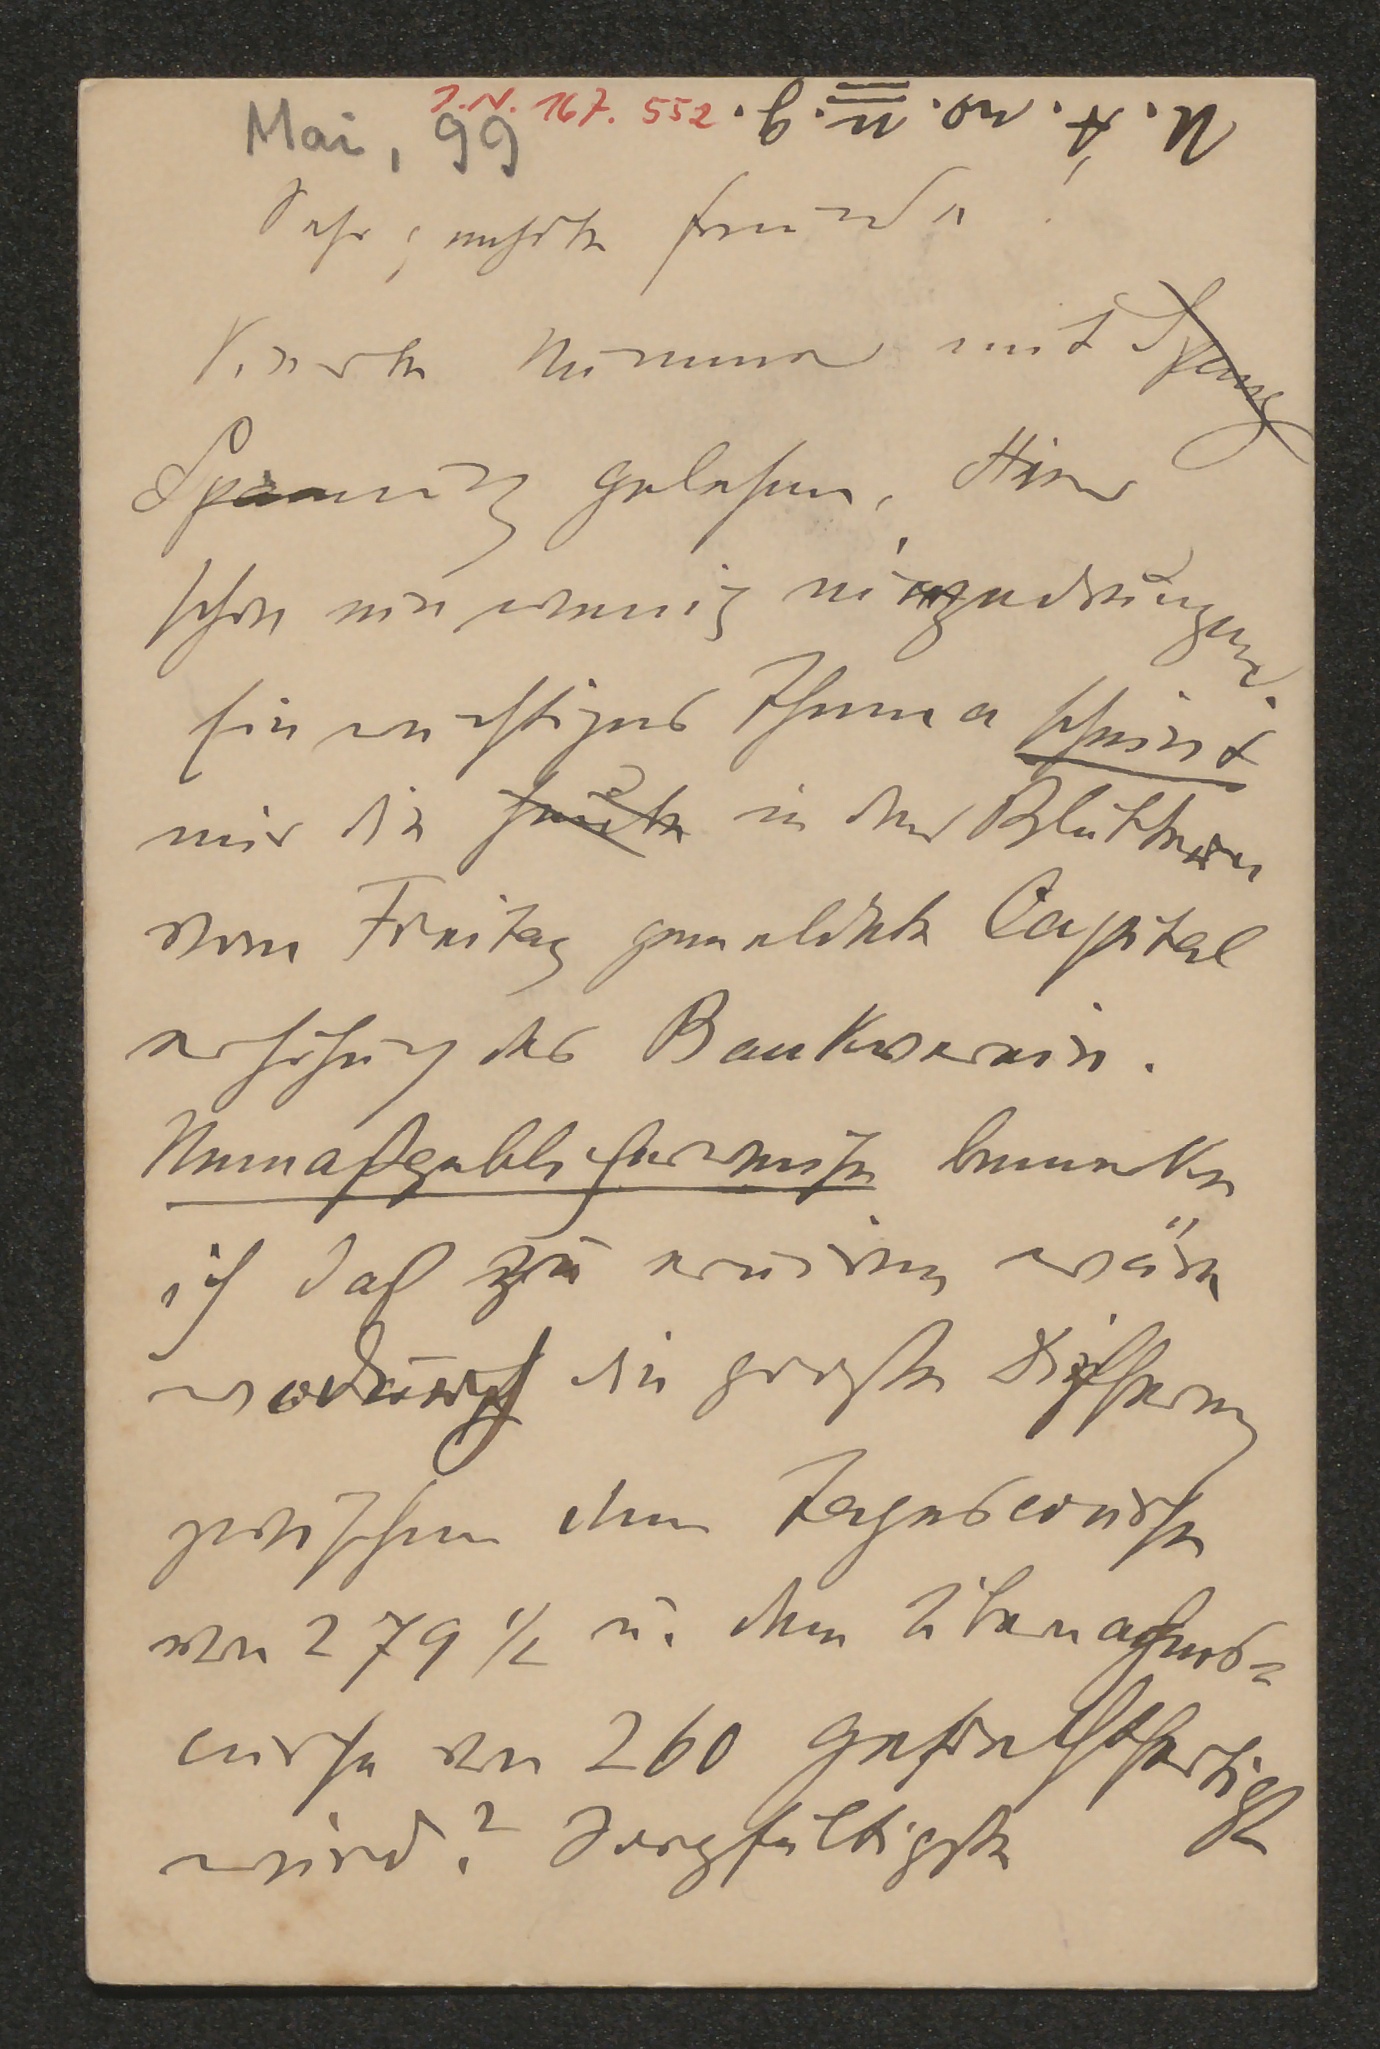 Mai, 99
I.N. 167.552
Sehr geehrter Freund!
Vierte Nummer mit Spang
Spannung gelesen, Hier
schon ein wenig eingedrungen.
Ein wichtiges Thema scheint
mir die heute in den Blättern
vom Freitag gemeldete Capital
erhöhung des Bankverein.
Unmaßgeblicherweise bemerke
ich daß zu eruiren wäre
wodurch die große Differenz
zwischen dem Tagescourse
von 279 1/2 u. dem Übernahms-
curse von 260 gerechtfertigt
wird? Sorgfältigste